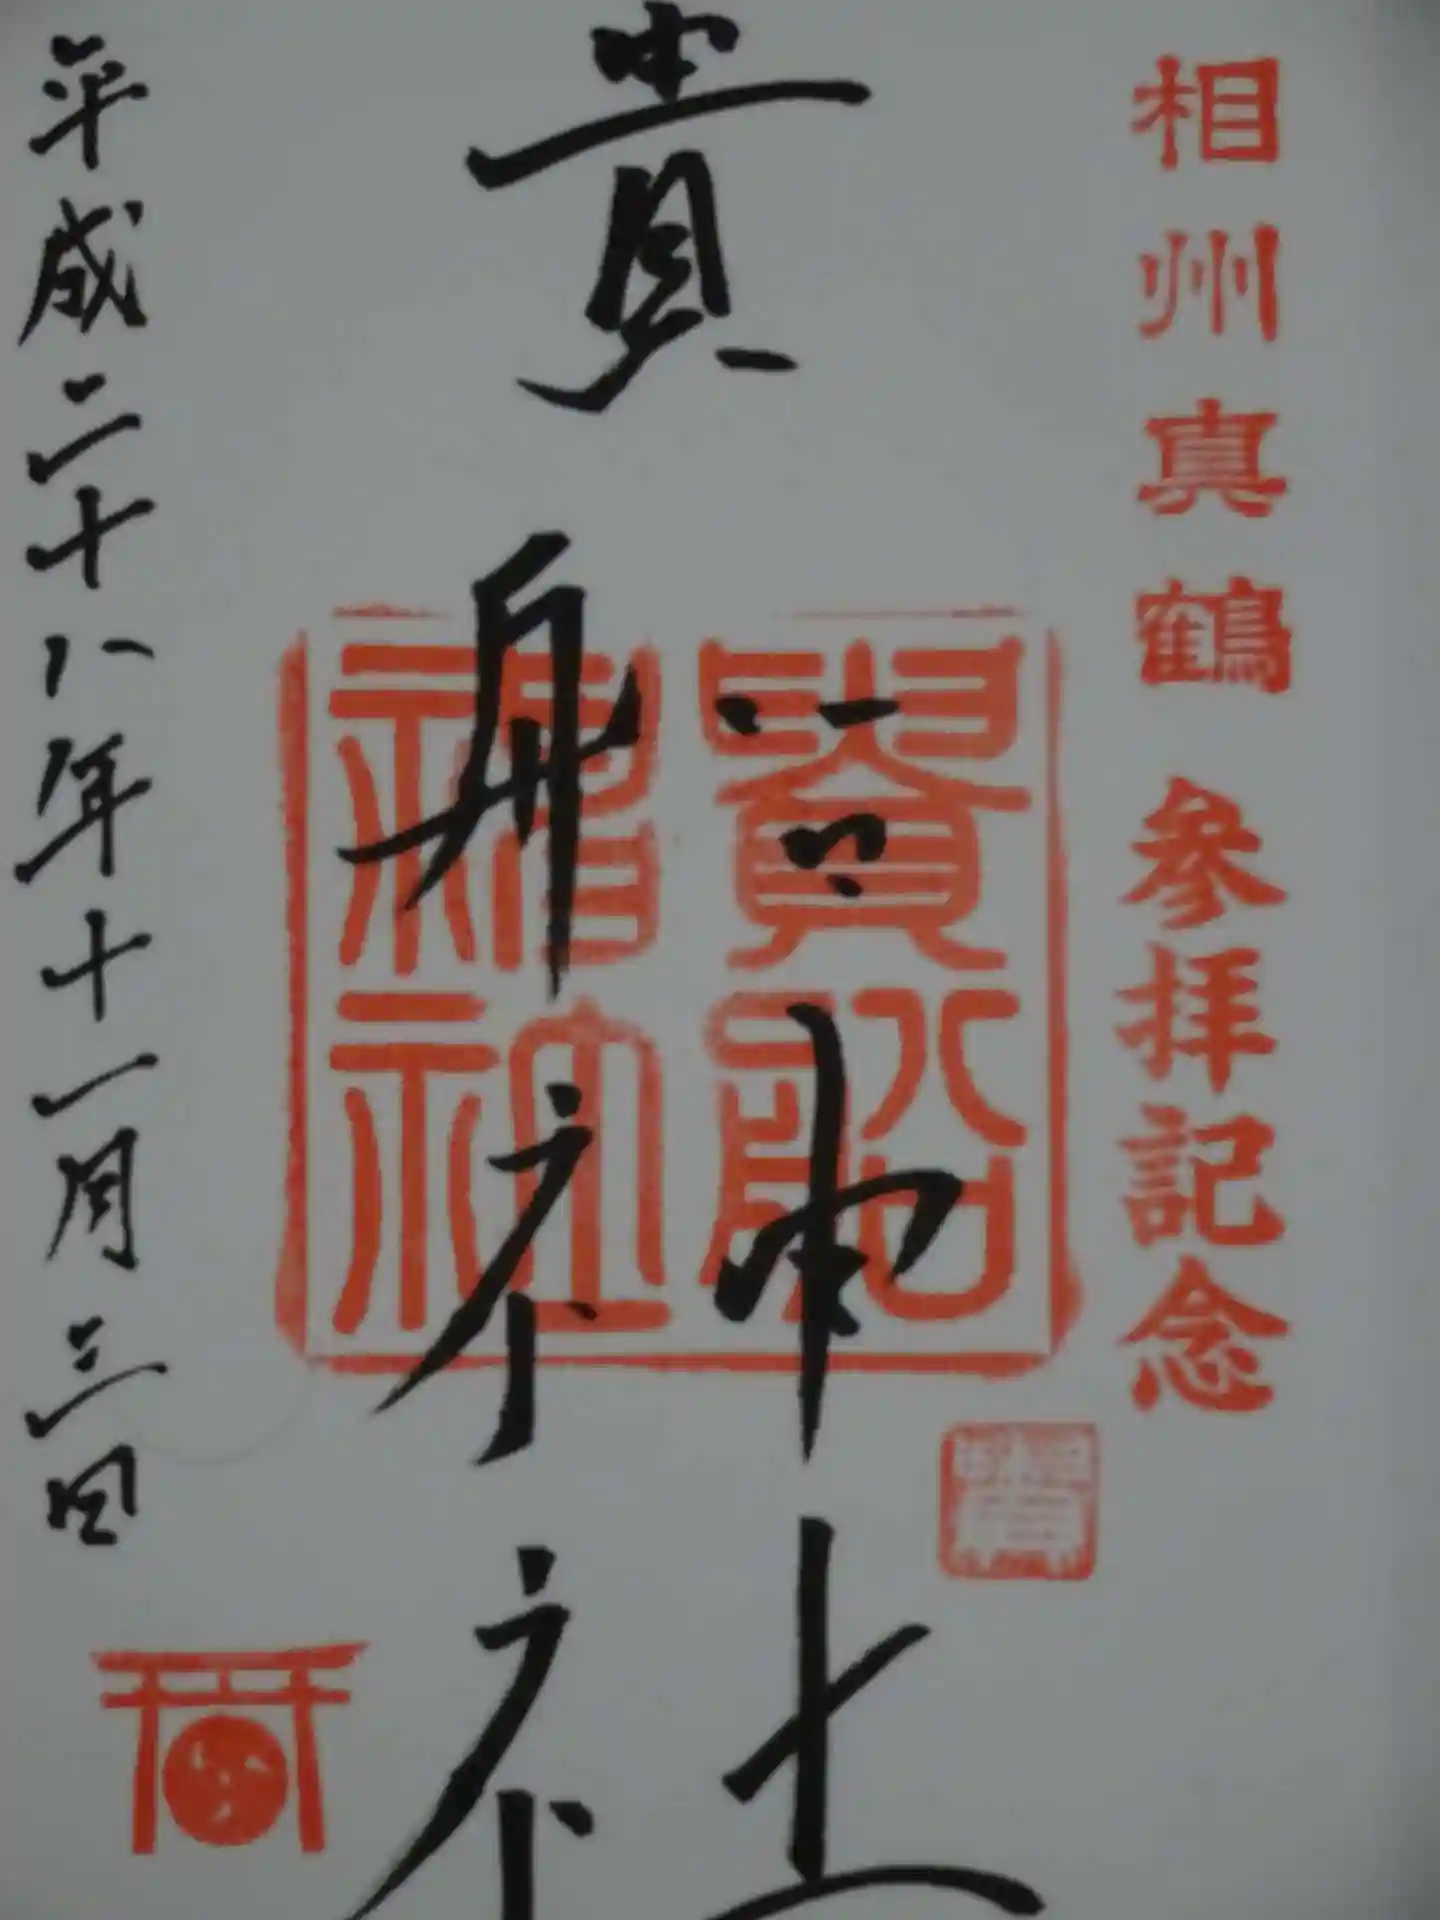 相州真鶴 参拝記念
貴船神社
貴船神社
平成二十八年十一月三日
貴